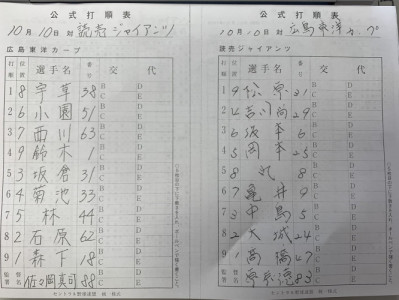 公式打順表
10月10日 対 読売ジャイアンツ
広島東洋カープ
打順 位置 選手名 番号 交代
1 8 宇草 38 B C D E
2 6 小園 51 B C D E
3 7 西川 63 B C D E
4 9 鈴木 1 B C D E
5 3 坂倉 31 B C D E
6 4 菊池 33 B C D E
7 5 林 44 B C D E
8 2 石原 62 B C D E
9 1 森下 18 B C D E
監督署名 佐々岡真司 88
セントラル野球連盟
公式打順表
10月10日 対 広島東洋カープ
読売ジャイアンツ
打順 位置 選手名 番号 交代
1 9 松原 31 B C D E
2 4 吉川尚 29 B C D E
3 6 坂本 6 B C D E
4 5 岡本 25 B C D E
5 8 丸 8 B C D E
6 7 亀井 9 B C D E
7 3 中島 5 B C D E
8 2 大城 24 B C D E
9 1 高橋 47 B C D E
監督署名 83
セントラル野球連盟